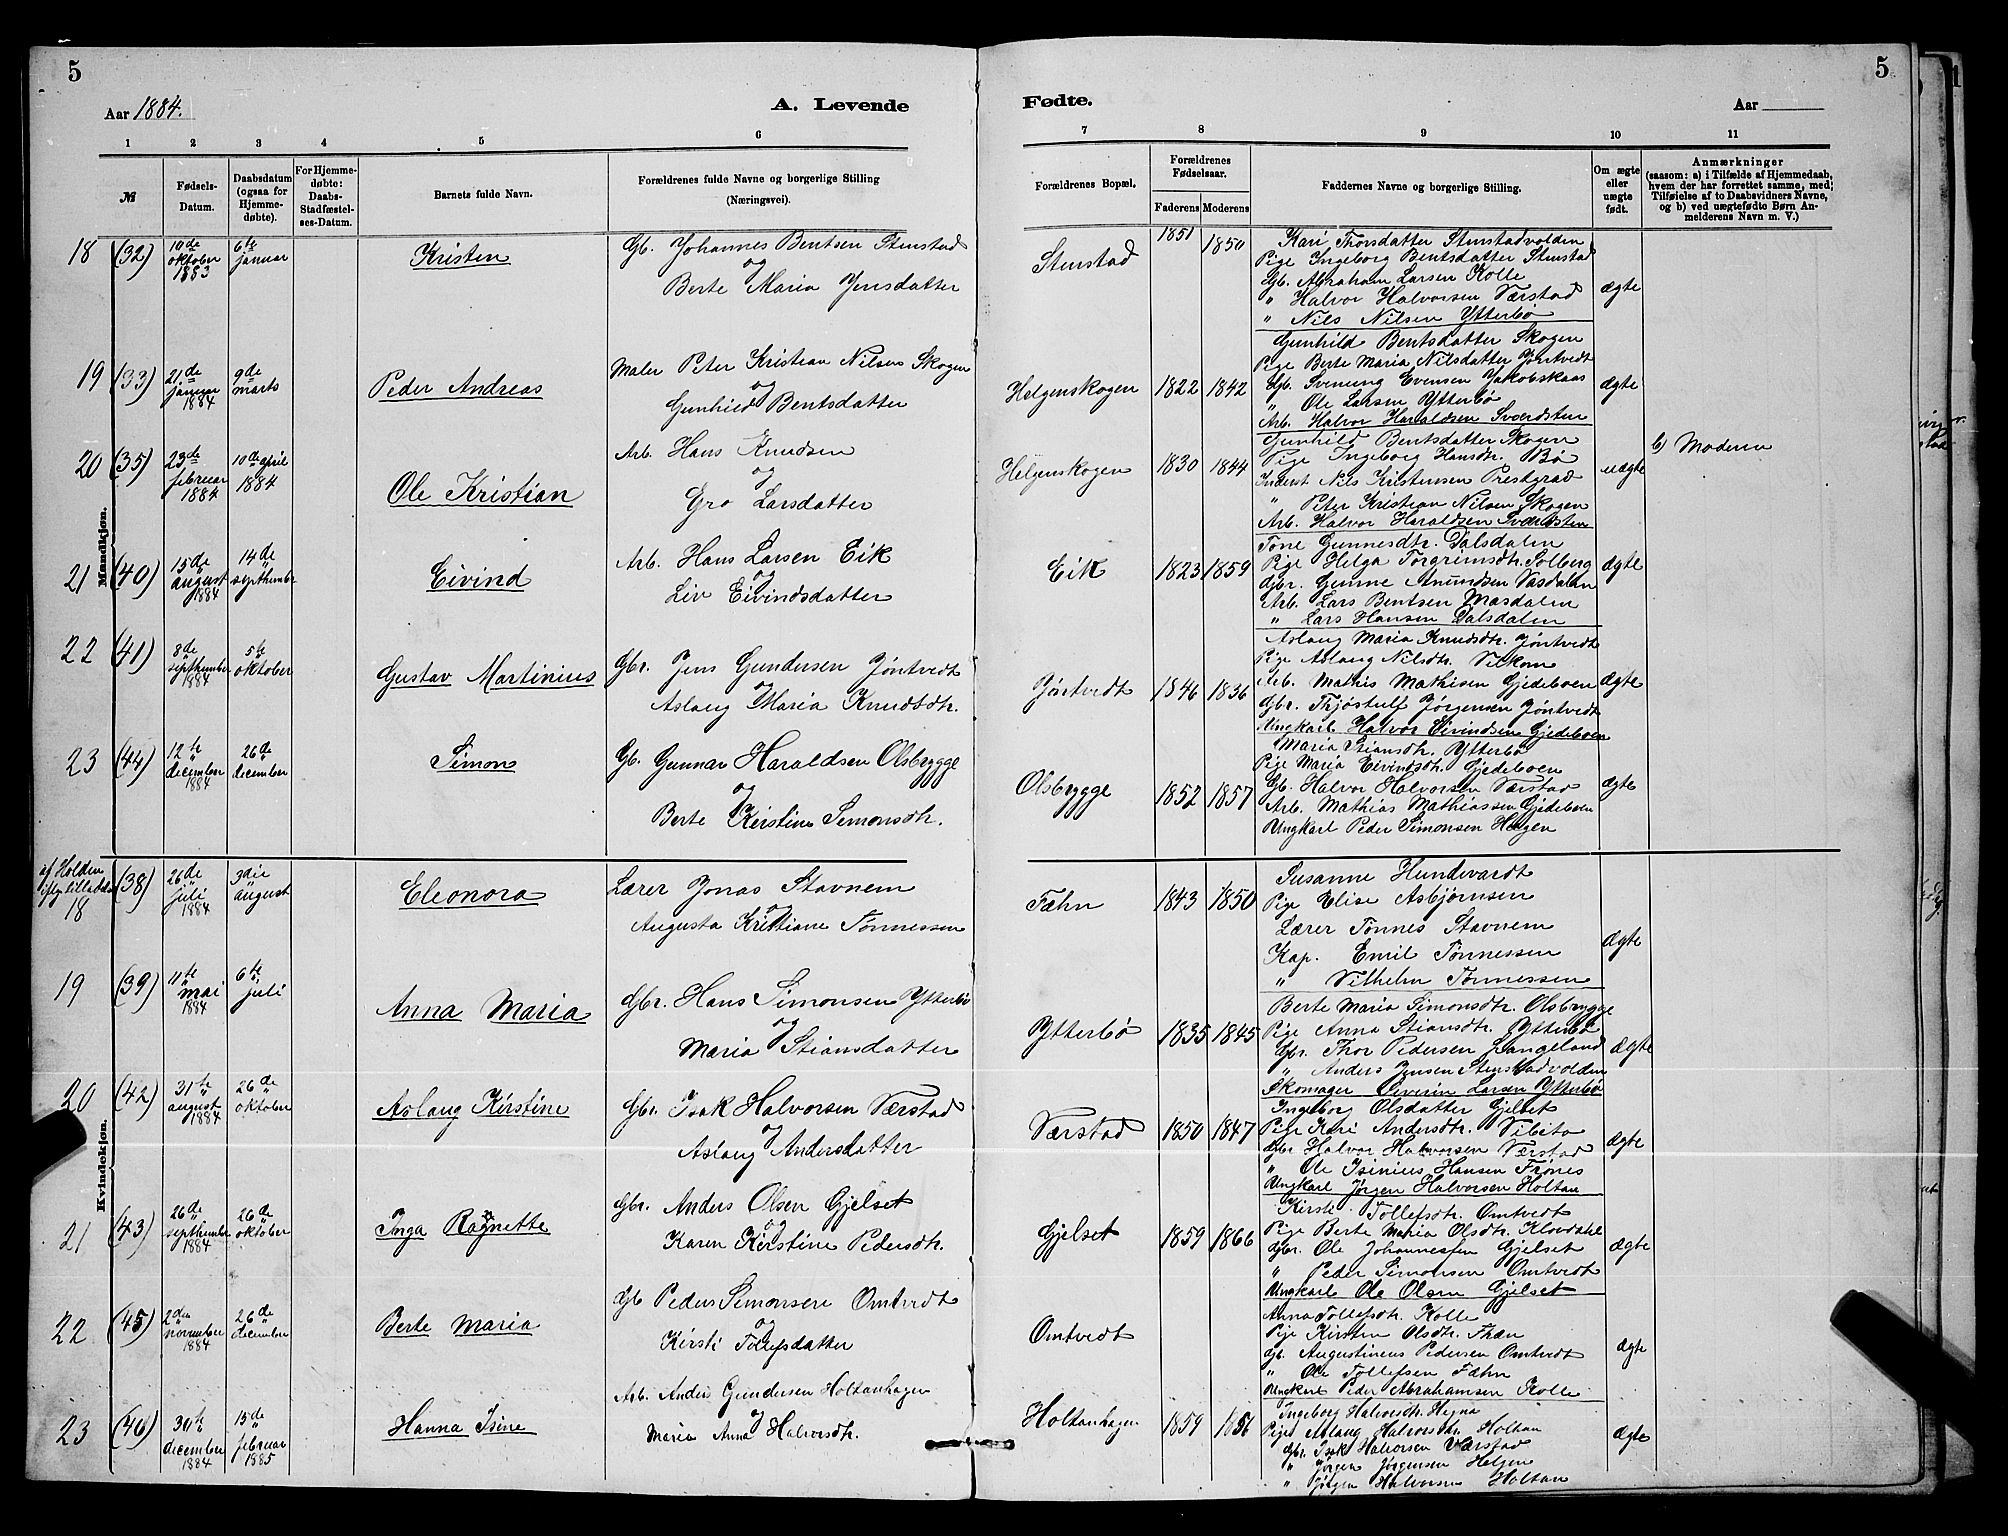 5
Aar 1884.
A. Levende
Fødte.
Aar
5
1 2 3 4 5 6 7 8 9 10 11
№
Fødsels-Datum.
Daabsdatum (ogsaa for Hjemme-døbte).
For Hjemme-døbte: Daabs-Stadfæstel-ses-Datum.
Barnets fulde Navn.
Forældrenes fulde Navne og borgerlige Stilling (Næringsvei).
Forældrenes Bopæl.
Forældrenes Fødselsaar.
Faderens Moderens
Faddernes Navne og borgerlige Stilling.
Om ægte eller uægte født.
Anmærkninger (saasom: a) i Tilfælde af Hjemmedaab, hvem der har forrettet samme, med Tilføielse af to Daabsvidners Navne, og b) ved uægtefødte Børn An-melderens Navn m. V.)
Mandkjøn.
18 (32) 10de oktober 1883 6te januar Kristen
Gb. Johannes Bentsen Stenstad
og
Berte Maria Jensdatter
Stenstad 1851 1850
Kari Thorsdatter Stenstadvolden
Pige Ingeborg Bentsdatter Stenstad
Gb. Abraham Larsen Kolle
" Halvor Halvorsen Værstad
" Nils Nilsen Ytterbø
ægte
19 (33) 21de januar 1884 9de marts Peder Andreas
Maler Peter Kristian Nilsen Skogen
og
Gunhild Bentsdatter
Helgenskogen 1822 1842
Gunhild Bentsdatter Skogen
Pige Berte Maria Nilsdatter Jøntvedt
Gb. Svenung Evensen Jakobskaas
" Ole Larsen Ytterbø
Arb. Halvor Haraldsen Sværdsten
ægte
20 (35) 23de februar 1884 10de april 1884 Ole Kristian
Arb. Hans Knudsen
og
Gro Larsdatter
Helgenskogen 1830 1844
Gunhild Bentsdatter Skogen
Pige Ingeborg Hansdtr. Bø
Inderst Nils Kristensen Prestgrad
" Peter Kristian Nilsen Skogen
Arb. Halvor Haraldsen Sværdsten
uægte
b) Moderen
21 (40) 15de august 1884 14de septhember Eivind
Arb. Hans Larsen Eik
og
Liv Eivindsdatter
Eik 1823 1859
Tone Gunnesdtr. Dalsdalen
Pige Helga Torgrimsdtr. Solberg
Gbr. Gunne Anundsen Vasdalen
Arb. Lars Bentsen Masdalen
" Lars Hansen Dalsdalen
ægte
22 (41) 8de septhember 1884 5te oktober Gustav Martinius
Gbr. Jens Gundersen Jøntvedt
og
Aslaug Maria Knudsdtr.
Jøntvedt 1846 1836
Aslaug Maria Knudsdtr. Jøntvedt
Pige Aslaug Nilsdtr. Vilkom
Arb. Mathis Mathisen Gjedeboen
Gbr. Thjøstulf Jørgensen Jøntvedt
Ungkarl Halvor Eivindsen Gjedeboen
ægte
23 (44) 12te december 1884 26de december Simon
Gb. Gunnar Haraldsen Olsbrygge
og
Berte Kirstine Simonsdtr.
Olsbrygge 1852 1857
Maria Stiansdtr. Ytterbø
Pige Maria Eivindsdtr. Gjedeboen
Gb. Halvor Halvorsen Værstad
Arb. Mathias Mathiassen Gjedeboen
Ungkarl Peder Simonsen Helgen
ægte
Kvindekjøn.
af Holden
18 (38) 26de juli 1884 3die august Eleonora
Lærer Jonas Stavnem
og
Augusta Kristiane Tønnessen
Fæhn 1843 1850
Susanne Hundevardt
Pige Elise Asbjørnsen
Lærer Tønnes Stavnem
Kap. Emil Tønnessen
" Vilhelm Tønnessen
ægte
19 (39) 11te mai 1884 6te juli Anna Maria
Gbr. Hans Simonsen Ytterbø
og
Maria Stiansdatter
Ytterbø 1835 1845
Berte Maria Simonsdtr. Olsbrygge
Pige Anna Stiansdtr. Ytterbø
Gbr. Thor Pedersen Langeland
" Anders Jensen Stenstadvolden
Skomager Severin Larsen Ytterbø
ægte
20 (42) 31te august 1884 26de oktober Aslaug Kirstine
Gbr. Isak Halvorsen Værstad
og
Aslaug Andersdatter
Værstad 1850 1847
Ingeborg Olsdatter Gjelset
Pige Kari Andersdtr. Vibito
Gbr Halvor Halvorsen Værstad
" Ole Isinius Hansen Frönes
Ungkarl Jørgen Halvorsen Holtan
ægte
21 (43) 26de septhember 1884 26de oktober Inga Ragnette
Gbr. Anders Olsen Gjelset
og
Karen Kirstine Pedersdtr.
Gjelset 1859 1866
Kirsti Tollefsdtr. Omtvedt
Pige Berte Maria Olsdtr. Klovdahl
Gbr. Ole Johannessen Gjelset
" Peder Simonsen Omtvedt
Ungkarl Ole Olsen Gjelset
ægte
22 (45) 2den november 1884 26de december Berte Maria
Gb Peder Simonsen Omtvedt
og
Kirsti Tollefsdatter
Omtvedt
Anna Tollefsdtr. Kolle
Pige Kirsten Olsdtr. Fhæn
Gb. Augustinus Pedersen Omtvedt
" Ole Tollefsen Fæhn
Ungkarl Peder Abrahamsen Kolle
ægte
23 (46) 30te december 1884 15de februar 1885 Hanna Isine
Arb. Anders Gundersen Holtanhagen
og
Maria Anna Halvorsdtr.
Holtanhagen 1859 1856
Ingeborg Halvorsdtr. Hegna
Pige Aslaug Halvorsdtr. Holtan
Gbr. Isak Halvorsen Værstad
" Jørgen Jørgensen Helgen
" Jørgen Halvorsen Holtan
ægte